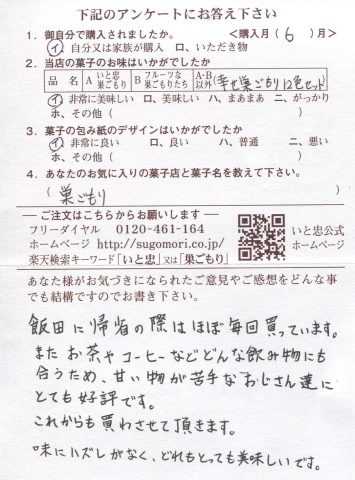 下記のアンケートにお答え下さい
1. 御自分で購入されましたか。 <購入月( 6 )月>
イ、自分又は家族が購入 ロ、いただき物
2. 当店の菓子のお味はいかがでしたか
品名 A いと忠巣ごもり B フルーツな巣ごもりたち A・B以外 (幸せ巣ごもり12色セット)
イ、非常に美味しい ロ、美味しい ハ、まあまあ ニ、がっかり
ホ、その他( )
3. 菓子の包み紙のデザインはいかがでしたか
イ、非常に良い ロ、良い ハ、普通 ニ、悪い
ホ、その他( )
4. あなたのお気に入りの菓子店と菓子名を教えて下さい。
( 巣ごもり )
ご注文はこちらからお願いします
フリーダイヤル 0120-461-164
ホームページ http://sugomori.co.jp/
楽天検索キーワード「いと忠」又は「巣ごもり」
いと忠公式
ホームページ
あなた様がお気づきになられたご意見やご感想をどんな事
でも結構ですのでお書き下さい。
飯田に帰省の際はほぼ毎回買っています。
またお茶やコーヒーなどどんな飲み物にも
合うため、甘い物が苦手なおじさん達に
とても好評です。
これからも買わさせて頂きます。
味にハズレがなく、どれもとっても美味しいです。